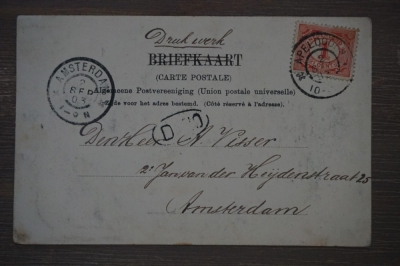 Drukwerk
BRIEFKAART
(CARTE POSTALE)
Algemeene Postvereeniging (Union postale universelle)
Zijde voor het adres bestemd. (Côté réservé à l'adresse).
AMSTERDAM
SEP
03
N
APELDOORN
10
D
Den Heer A. Visser
2e Jan van der Heijdenstraat 25
Amsterdam